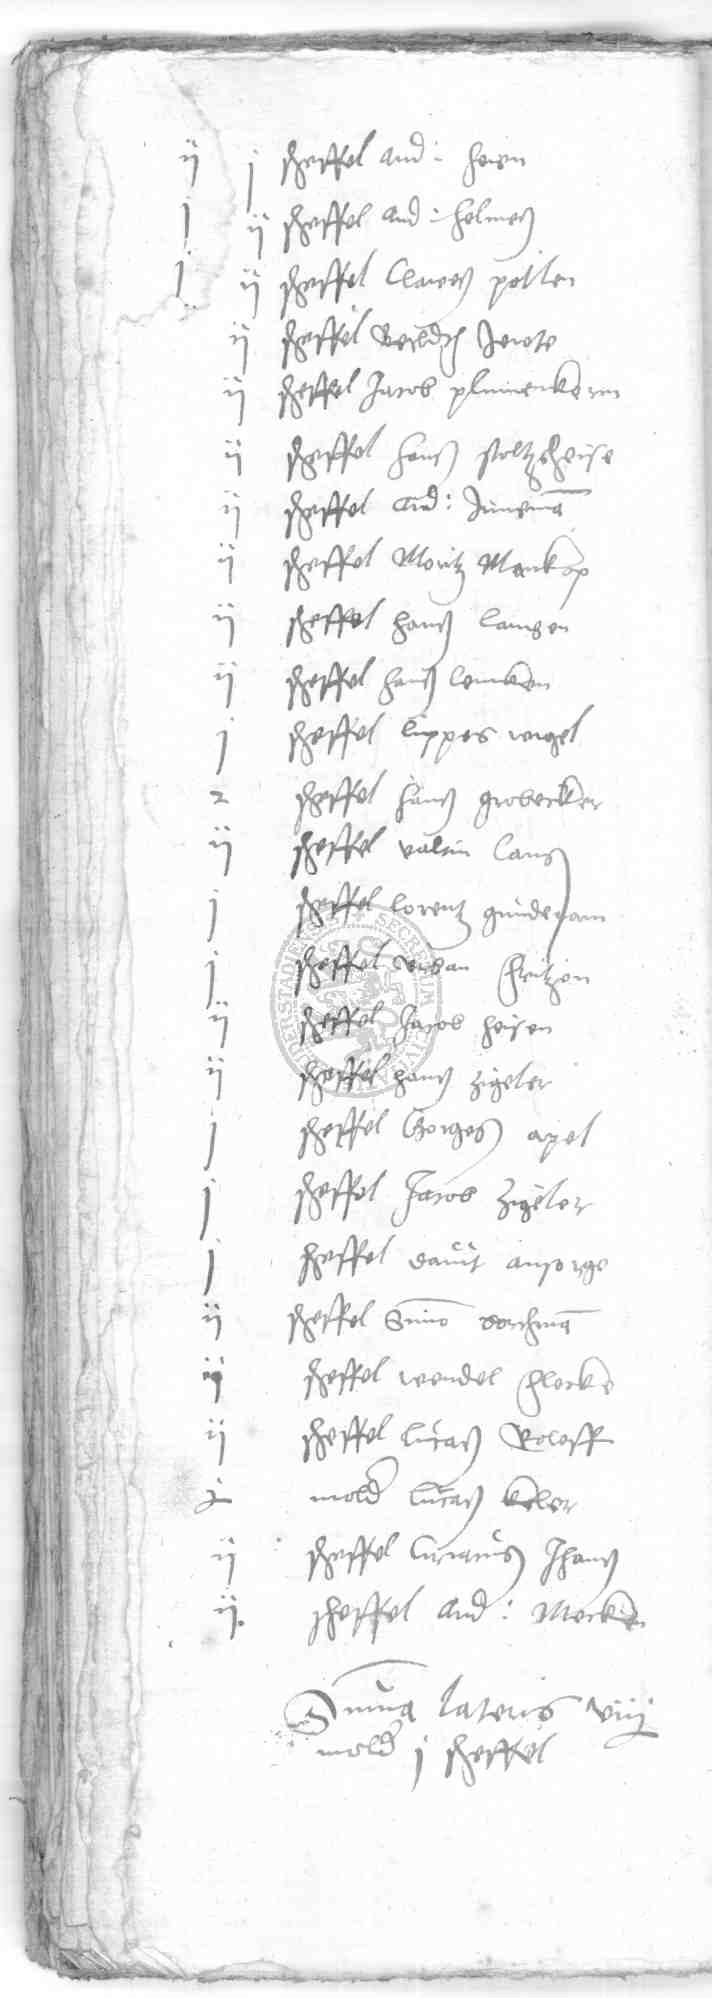 ij j scheffel And: heien
j ij scheffel And: helmes
j ij scheffel Clawes pollen
ij scheffel
ij scheffel Jacob plumenkern
ij scheffel hans stoltzeheise
ij scheffel And: Junemā
ij scheffel Moritz Markop
ij scheffel hans langen
ij scheffel hans lemken
j scheffel lippes wigel
2 scheffel hans grobecker
ij scheffel valtin lang
j scheffel lorentz
j scheffel urban fritzen
ij scheffel Jacob heisen
ij scheffel hans zigeler
j scheffel Gorges apel
j scheffel Jacob zigeler
j scheffel davit ansorge
ij scheffel Simō borchmā
scheffel wendel flecke
ij scheffel lucas Roleff
mold lucas keler
ij scheffel Ciriacus Jhans
ij scheffel And: Mecken
Suma lateris viij
mold j scheffel